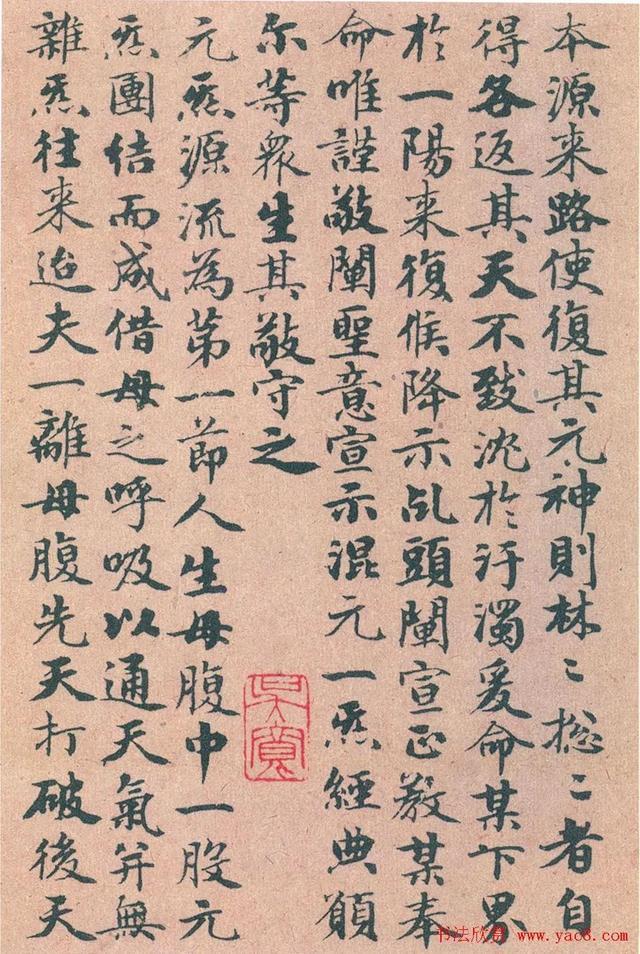 本源来路使復其元神則林〻揔〻者自
得各返其天不致沈於汙濁爰命某下界
於一陽来復候降示乩頭闡宣正教某奉
命唯謹敬闡聖意宣示混元一炁經典願
尔等衆生其敬守之
吴寬
元炁源流為第一節人生母腹中一股元
炁團结而成借母之呼吸以通天氣并無
雜炁往来迨夫一離母腹先天打破後天
书法欣赏
www.yac8.com